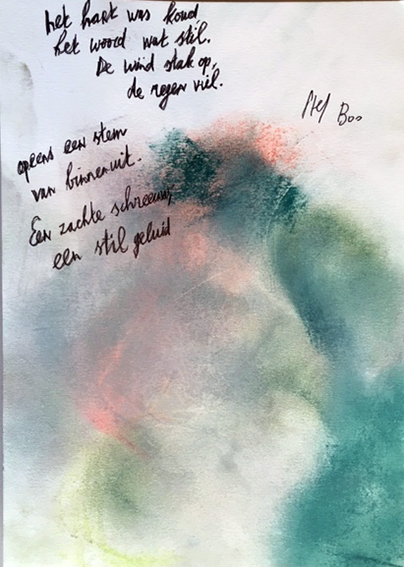 het hart was koud
het woord wat stil.
De wind stak op,
de regen viel.
Stef Boo
opeens een stem
van binnenuit.
Een zachte schreeuw,
een stil geluid